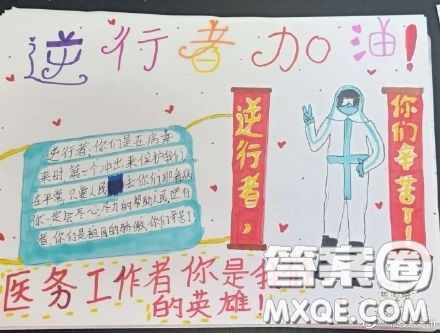 逆行者加油!
逆行者,你们是在病毒
来时第一个冲出来保护我们
在平常,只要人民 去你们那看病
你一定会尽心尽力的帮助人民逆行
者你们是祖国的骄傲,你们辛苦了!
逆行者,
你们辛苦了!
医务工作者你是我
的英雄!
答案圈
MXQE.COM